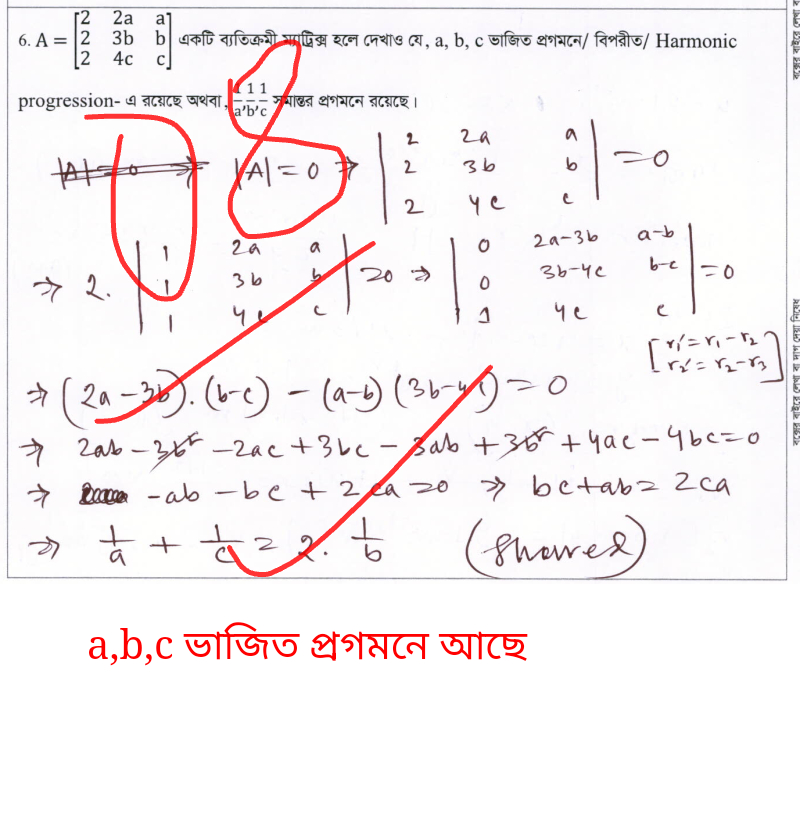 6. A = [2 2a a; 2 3b b; 2 4c c] একটি ব্যতিক্রমী ম্যাট্রিক্স হলে দেখাও যে, a, b, c ভাজিত প্রগমনে/ বিপরীত/ Harmonic
progression- এ রয়েছে অথবা, 1/a, 1/b, 1/c সমান্তর প্রগমনে রয়েছে।
|A| = 0 ⇒ |A| = 0 ⇒ |2 2a a; 2 3b b; 2 4c c| = 0
⇒ 2. |1 2a a; 1 3b b; 1 4c c| = 0 ⇒ |0 2a-3b a-b; 0 3b-4c b-c; 1 4c c| = 0
[r₁′ = r₁ - r₂
r₂′ = r₂ - r₃]
⇒ (2a - 3b). (b-c) - (a-b) (3b-4c) = 0
⇒ 2ab - 3b² - 2ac + 3bc - 3ab + 3b² + 4ac - 4bc = 0
⇒ -ab - bc + 2ca = 0 ⇒ bc + ab = 2ca
⇒ 1/a + 1/c = 2. 1/b (Showed)
a,b,c ভাজিত প্রগমনে আছে